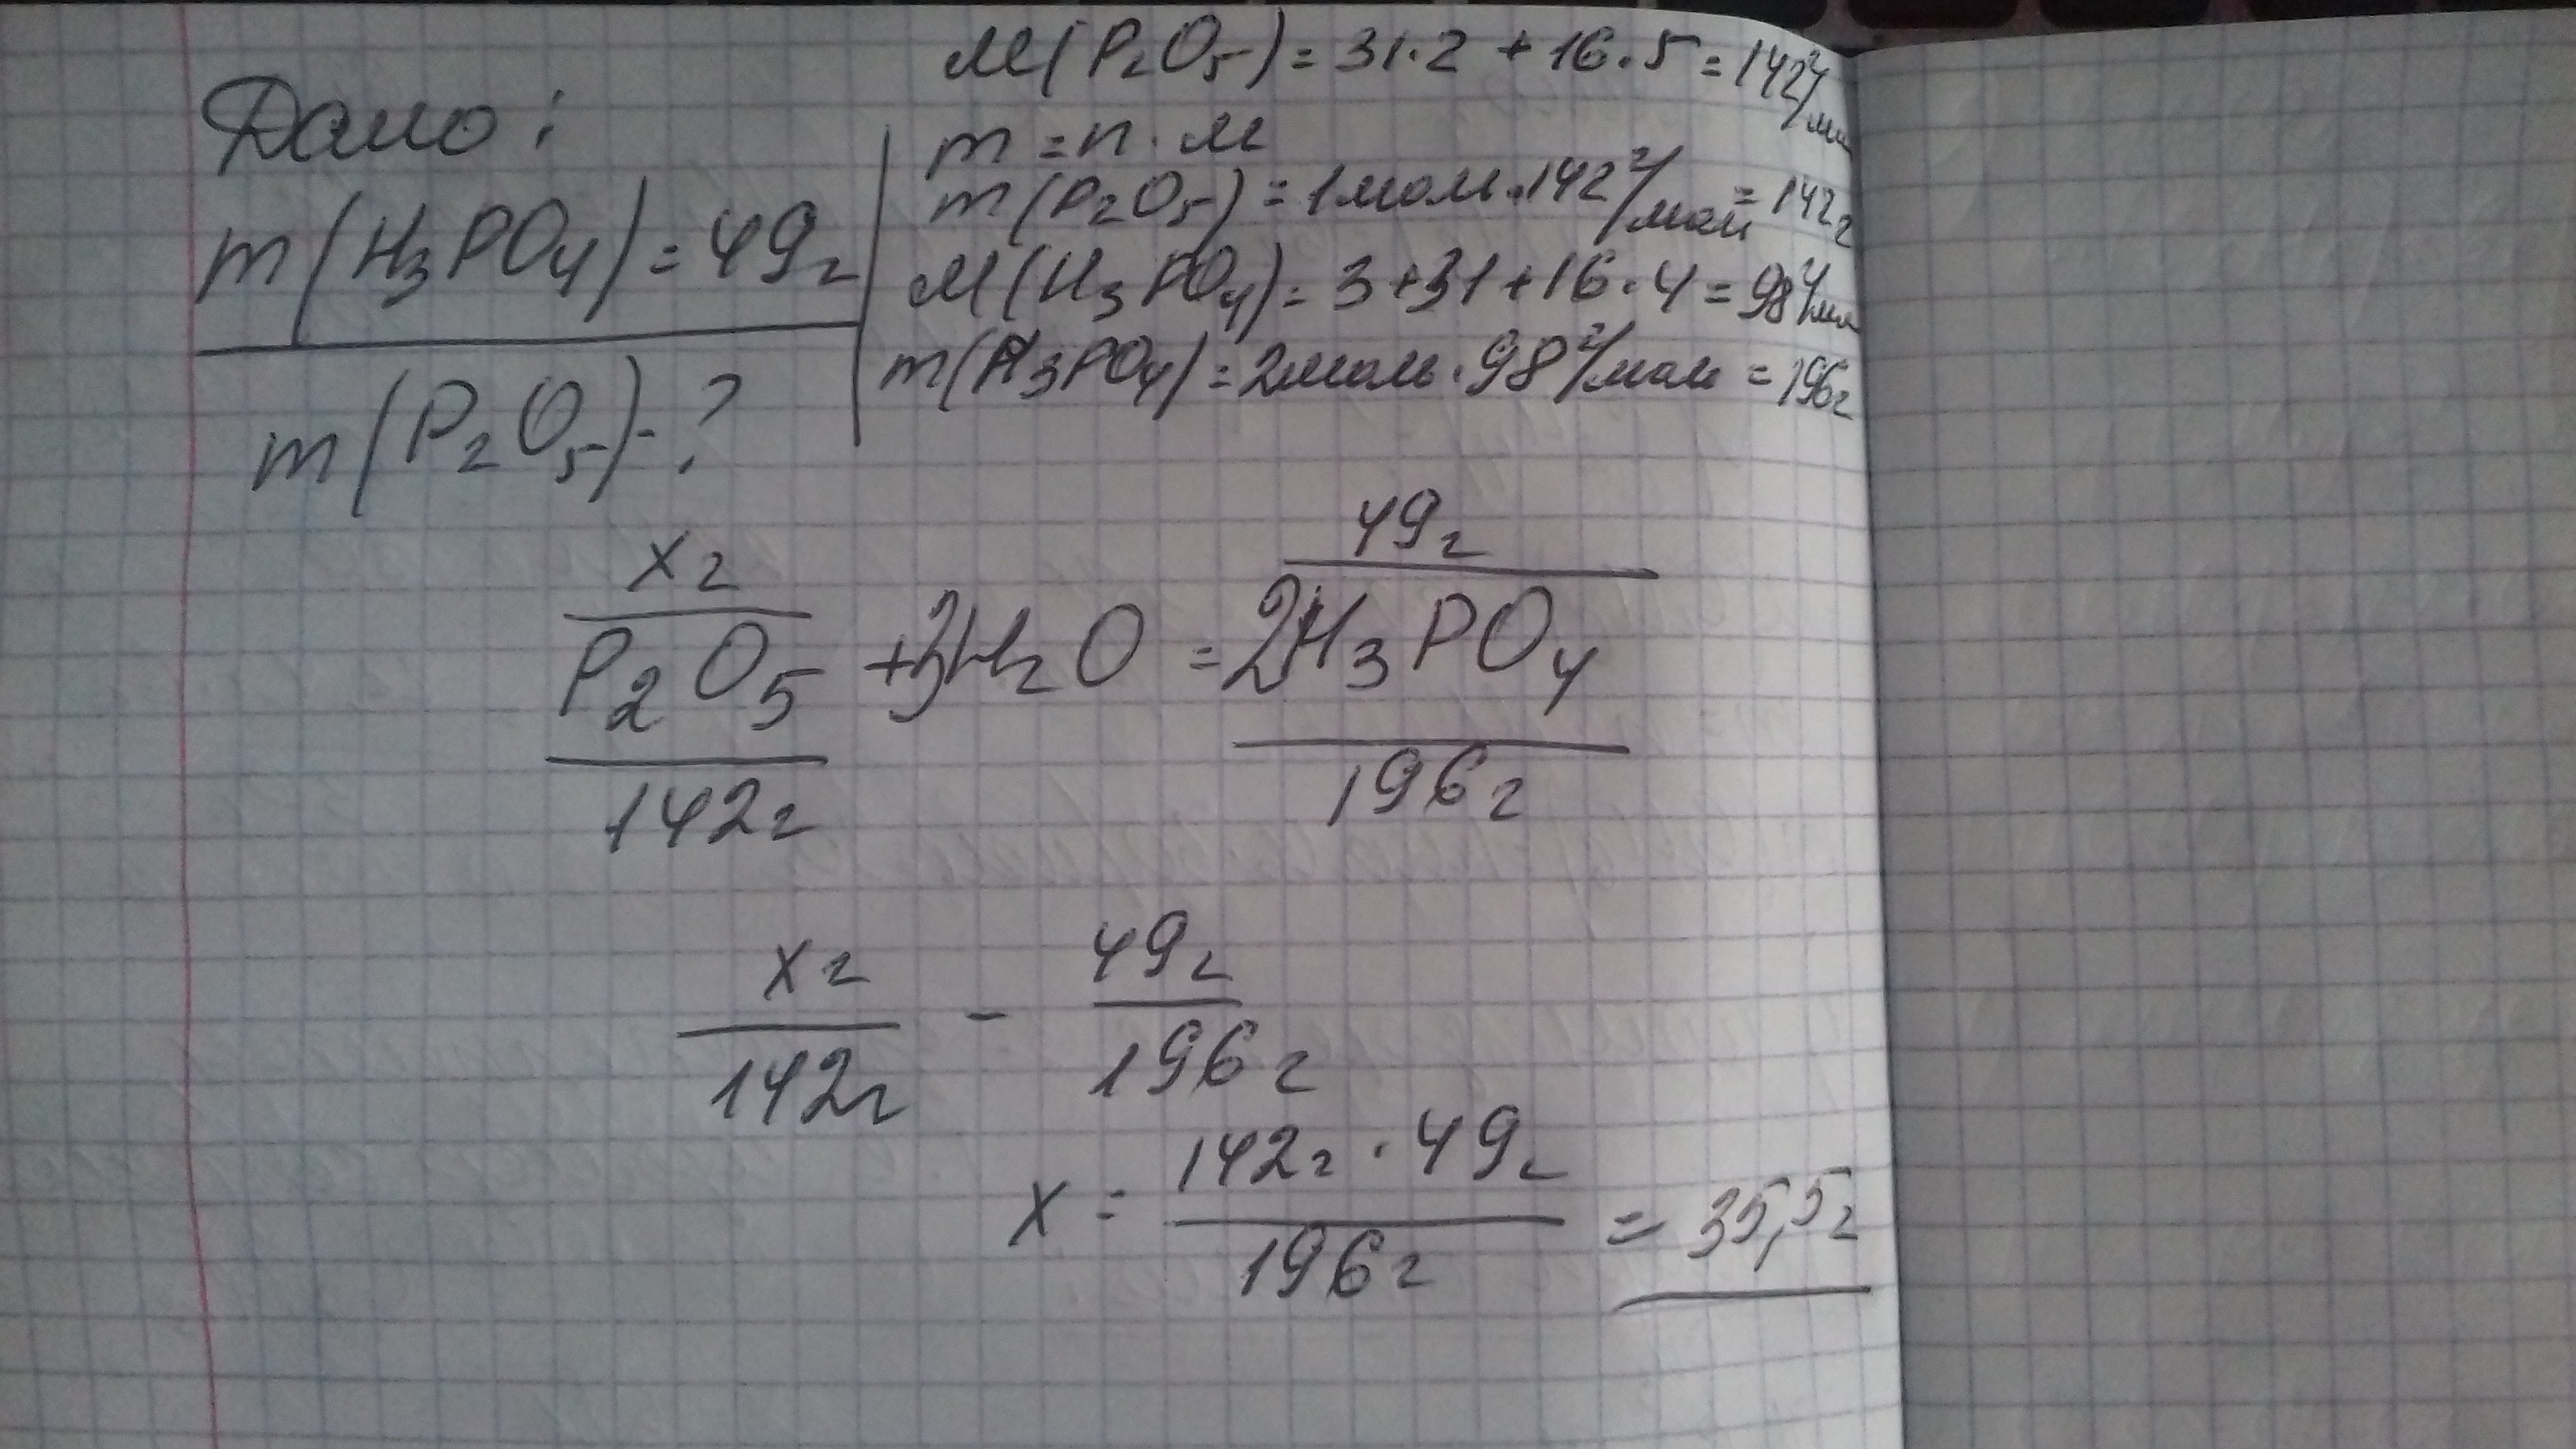 Дано:
m(H₃PO₄)=49г
m(P₂O₅)-?
M(P₂O₅)=31·2+16·5=142г/моль
m=n·M
m(P₂O₅)=1моль·142г/моль=142г
M(H₃PO₄)=3+31+16·4=98г/моль
m(H₃PO₄)=2моль·98г/моль=196г
xг 49г
P₂O₅+3H₂O=2H₃PO₄
142г 196г
xг - 49г
142г 196г
142г·49г
x= =35,5г
196г